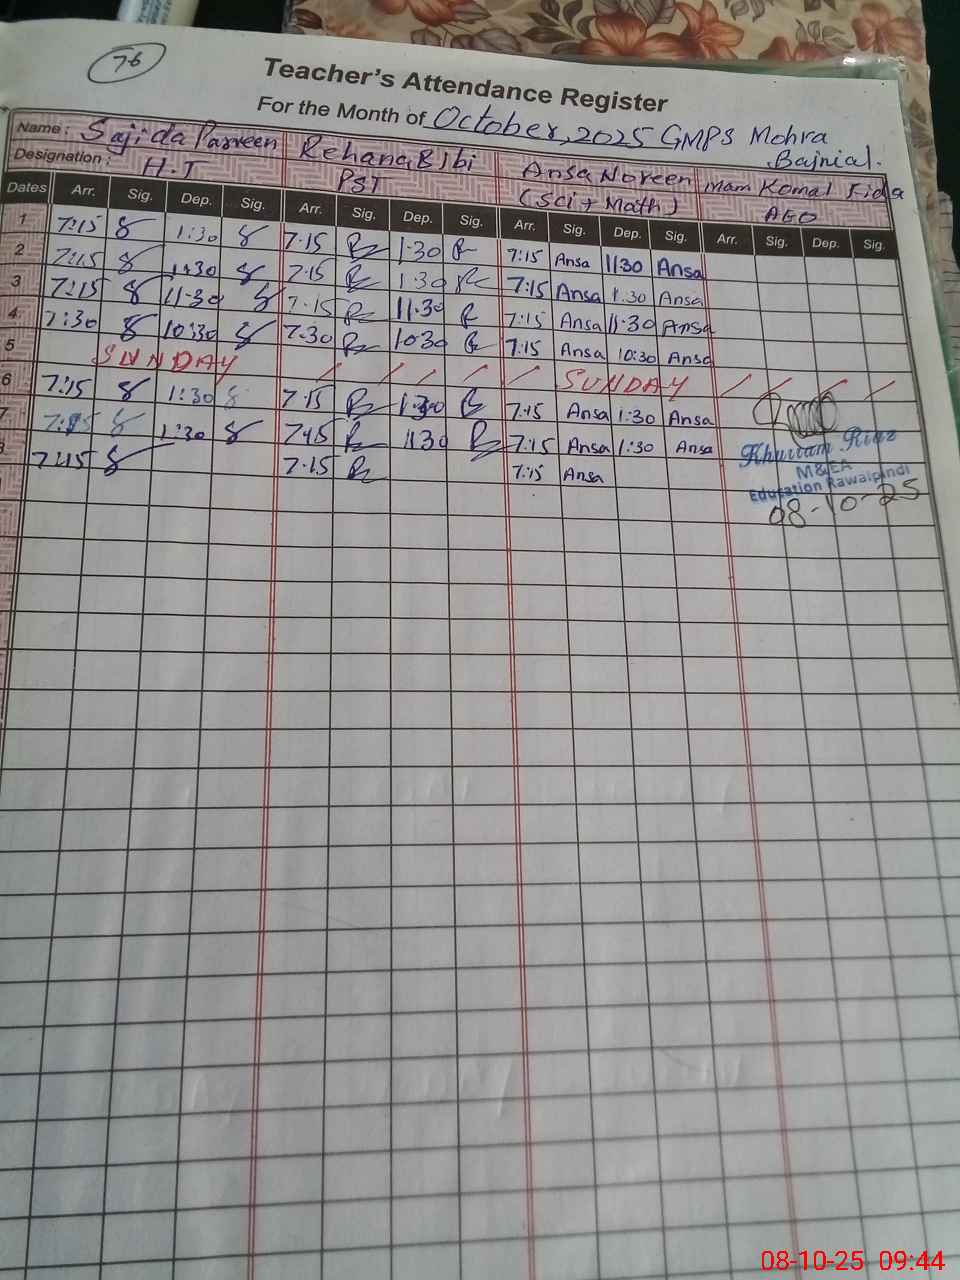 76
Teacher's Attendance Register
For the Month of October, 2025 GMPS Mohra Bajnial.
Name: Sajida Parveen Rehana Bibi Ansa Noreen Mam Komal Fida
Designation: H.T PST (Sci + Math) AEO
Dates Arr. Sig. Dep. Sig. Arr. Sig. Dep. Sig. Arr. Sig. Dep. Sig. Arr. Sig. Dep. Sig.
1 7:15 1:30 7.15 1.30 7:15 Ansa 1:30 Ansa
2 7:15 1:30 7.15 1.30 7:15 Ansa 1:30 Ansa
3 7:15 11:30 7.15 11.30 7:15 Ansa 11:30 Ansa
4 7:30 10:30 7.30 10.30 7:15 Ansa 10:30 Ansa
5 SUNDAY SUNDAY
6 7:15 1:30 7.15 1.30 7:15 Ansa 1:30 Ansa
7 7:15 1:30 7.15 1.30 7:15 Ansa 1:30 Ansa
8 7:15 7.15 7:15 Ansa
Khurram Riaz
M&EA
Education Rawalpindi
08-10-25
08-10-25 09:44